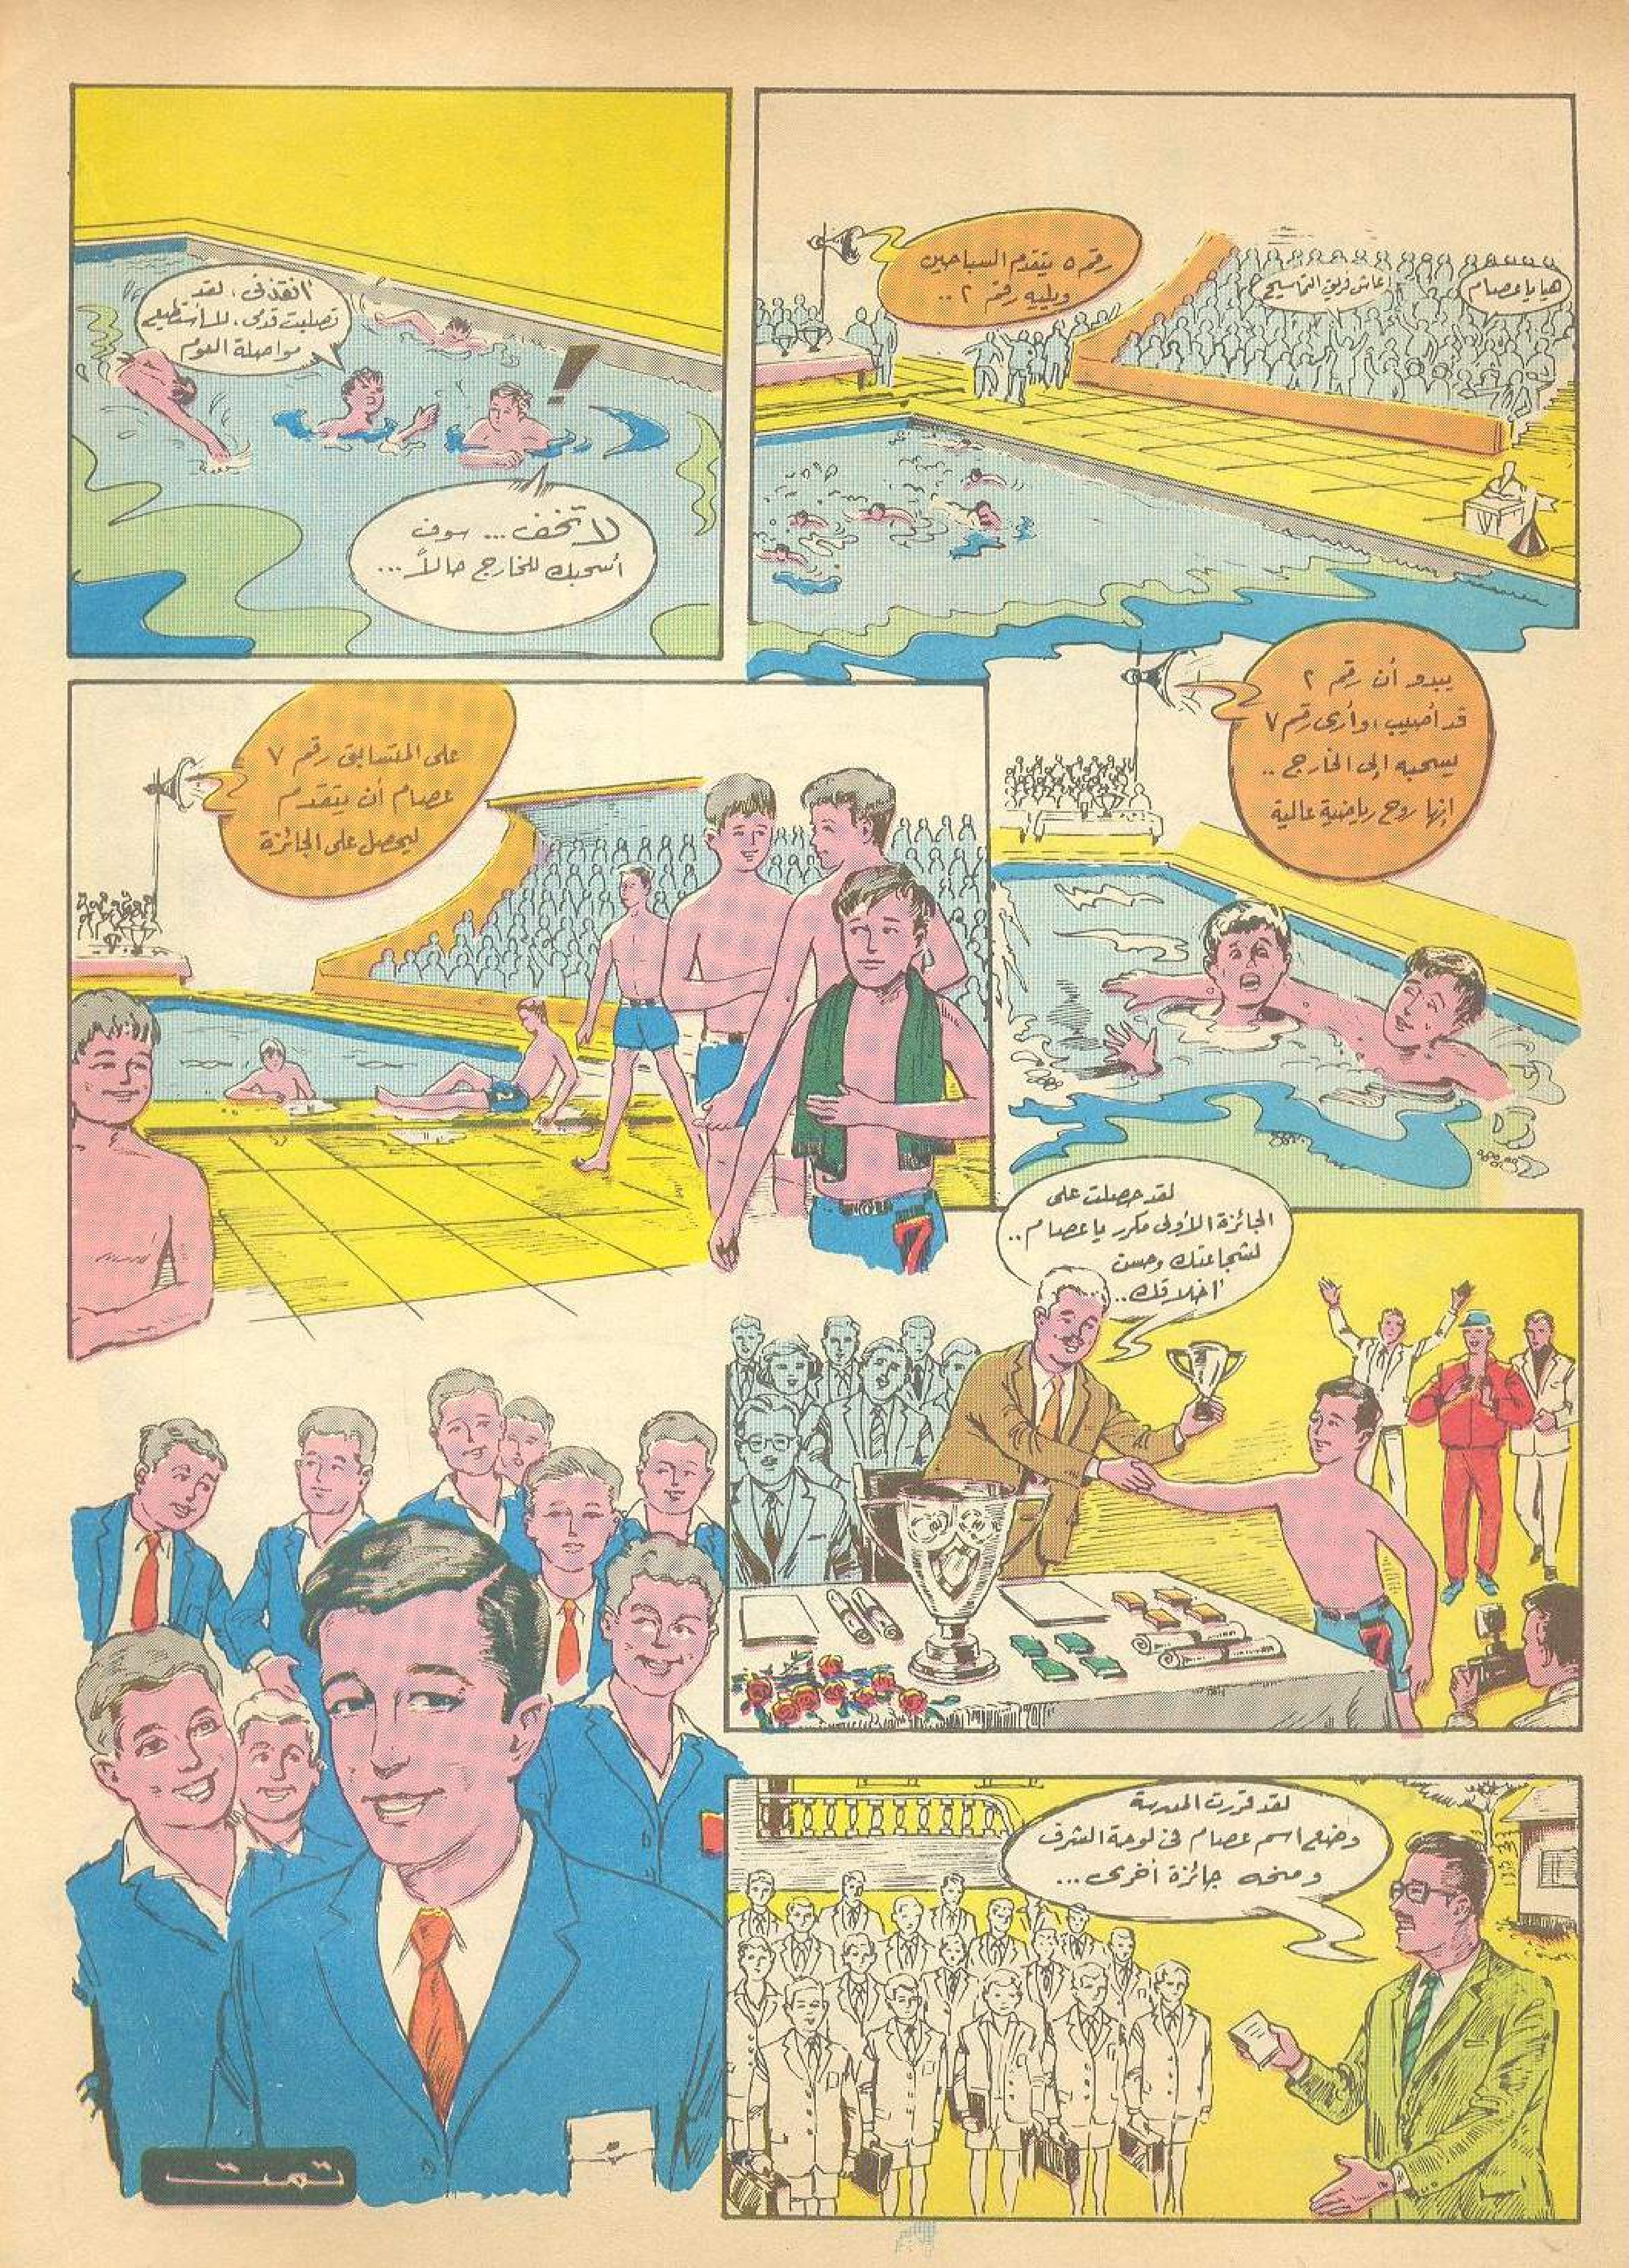 رقم ٥ يتقدم السباحين
ويليه رقم ٢ ..
هيا يا عصام
عاش فريق التماسيح
أنقذني، لقد
تصلبت قدمى، لا أستطيع
مواصلة العوم
لا تخف ... سوف
أسحبك للخارج حالاً ...
يبدو أن رقم ٢
قد أصيب، وأرى رقم ٧
يسحبه إلى الخارج ..
إنها روح رياضية عالية
على المتسابق رقم ٧
عصام أن يتقدم
ليحصل على الجائزة
7
لقد حصلت على
الجائزة الأولى مكرر يا عصام ..
لشجاعتك وحسن
أخلاقك ..
7
لقد قررت المدرسة
وضع اسم عصام فى لوحة الشرف
ومنحه جائزة أخرى ...
تمت